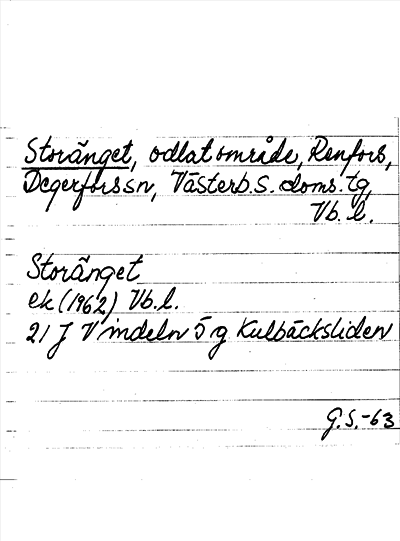 Storänget, odlat område, Renfors,
Degerfors sn, Västerb. s. doms. tg,
Vb. l.
Storänget
ek (1962) Vb. l.
21 J Vindeln 5 g Kulbäcksliden
G.S.-63